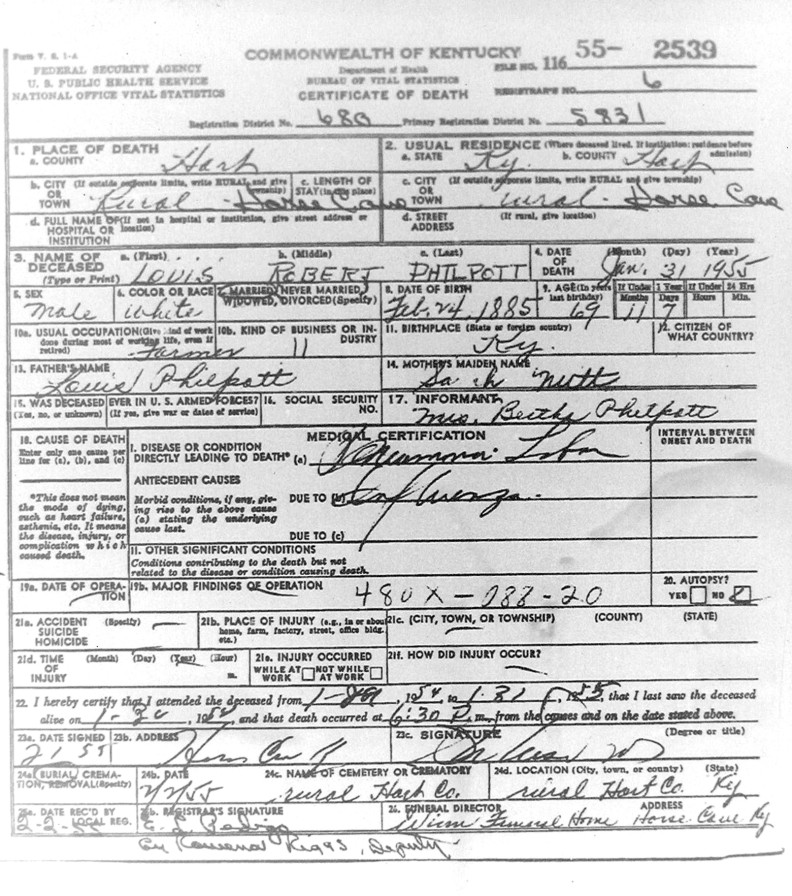 Form V. S. 1-A
COMMONWEALTH OF KENTUCKY
FILE NO. 116 55- 2539
FEDERAL SECURITY AGENCY
U. S. PUBLIC HEALTH SERVICE
NATIONAL OFFICE VITAL STATISTICS
Department of Health
BUREAU OF VITAL STATISTICS
CERTIFICATE OF DEATH
REGISTRAR'S NO. 6
Registration District No. 680 Primary Registration District No. 5831
1. PLACE OF DEATH
a. COUNTY Hart
2. USUAL RESIDENCE (Where deceased lived. If institution: residence before admission)
a. STATE Ky. b. COUNTY Hart
b. CITY (If outside corporate limits, write RURAL and give township)
OR TOWN Rural - Horse Cave
c. LENGTH OF STAY (in this place)
c. CITY (If outside corporate limits, write RURAL and give township)
OR TOWN rural - Horse Cave
d. FULL NAME OF (If not in hospital or institution, give street address or location)
HOSPITAL OR INSTITUTION
d. STREET ADDRESS (If rural, give location)
3. NAME OF DECEASED (Type or Print)
a. (First) b. (Middle) c. (Last)
LOUIS ROBERT PHILPOTT
4. DATE OF DEATH (Month) (Day) (Year)
Jan. 31 1955
5. SEX
Male
6. COLOR OR RACE
White
7. MARRIED, NEVER MARRIED, WIDOWED, DIVORCED (Specify)
8. DATE OF BIRTH
Feb. 24, 1885
9. AGE (In years last birthday) If Under 1 Year Months Days If Under 24 Hrs Hours Min.
69 11 7
10a. USUAL OCCUPATION (Give kind of work done during most of working life, even if retired)
Farmer
10b. KIND OF BUSINESS OR INDUSTRY
11
11. BIRTHPLACE (State or foreign country)
Ky.
12. CITIZEN OF WHAT COUNTRY?
13. FATHER'S NAME
Louis Philpott
14. MOTHER'S MAIDEN NAME
Nutt
15. WAS DECEASED EVER IN U. S. ARMED FORCES?
(Yes, no, or unknown) (If yes, give war or dates of service)
16. SOCIAL SECURITY NO.
17. INFORMANT
Mrs. Bertha Philpott
18. CAUSE OF DEATH
Enter only one cause per line for (a), (b), and (c)
*This does not mean the mode of dying, such as heart failure, asthenia, etc. It means the disease, injury, or complication which caused death.
MEDICAL CERTIFICATION
INTERVAL BETWEEN ONSET AND DEATH
I. DISEASE OR CONDITION
DIRECTLY LEADING TO DEATH* (a) Pneumonia Lobar
ANTECEDENT CAUSES
Morbid conditions, if any, giving rise to the above cause (a) stating the underlying cause last.
DUE TO (b) Influenza
DUE TO (c)
II. OTHER SIGNIFICANT CONDITIONS
Conditions contributing to the death but not related to the disease or condition causing death.
19a. DATE OF OPERATION
19b. MAJOR FINDINGS OF OPERATION
480X-088-20
20. AUTOPSY?
YES NO
21a. ACCIDENT SUICIDE HOMICIDE (Specify)
21b. PLACE OF INJURY (e.g., in or about home, farm, factory, street, office bldg. etc.)
21c. (CITY, TOWN, OR TOWNSHIP) (COUNTY) (STATE)
21d. TIME OF INJURY (Month) (Day) (Year) (Hour) m.
21e. INJURY OCCURRED
WHILE AT WORK NOT WHILE AT WORK
21f. HOW DID INJURY OCCUR?
22. I hereby certify that I attended the deceased from , 1954, to 1-31, 1955, that I last saw the deceased
alive on , and that death occurred at 6:30 P.m., from the causes and on the date stated above.
23a. DATE SIGNED
23b. ADDRESS
23c. SIGNATURE (Degree or title)
24a. BURIAL, CREMATION, REMOVAL (Specify)
24b. DATE
2/2/55
24c. NAME OF CEMETERY OR CREMATORY
rural Hart Co.
24d. LOCATION (City, town, or county) (State)
rural Hart Co. Ky
25a. DATE REC'D BY LOCAL REG.
2-2-55
25b. REGISTRAR'S SIGNATURE
26. FUNERAL DIRECTOR ADDRESS
Winn Funeral Home Horse Cave Ky
By Rowena Riggs, Deputy